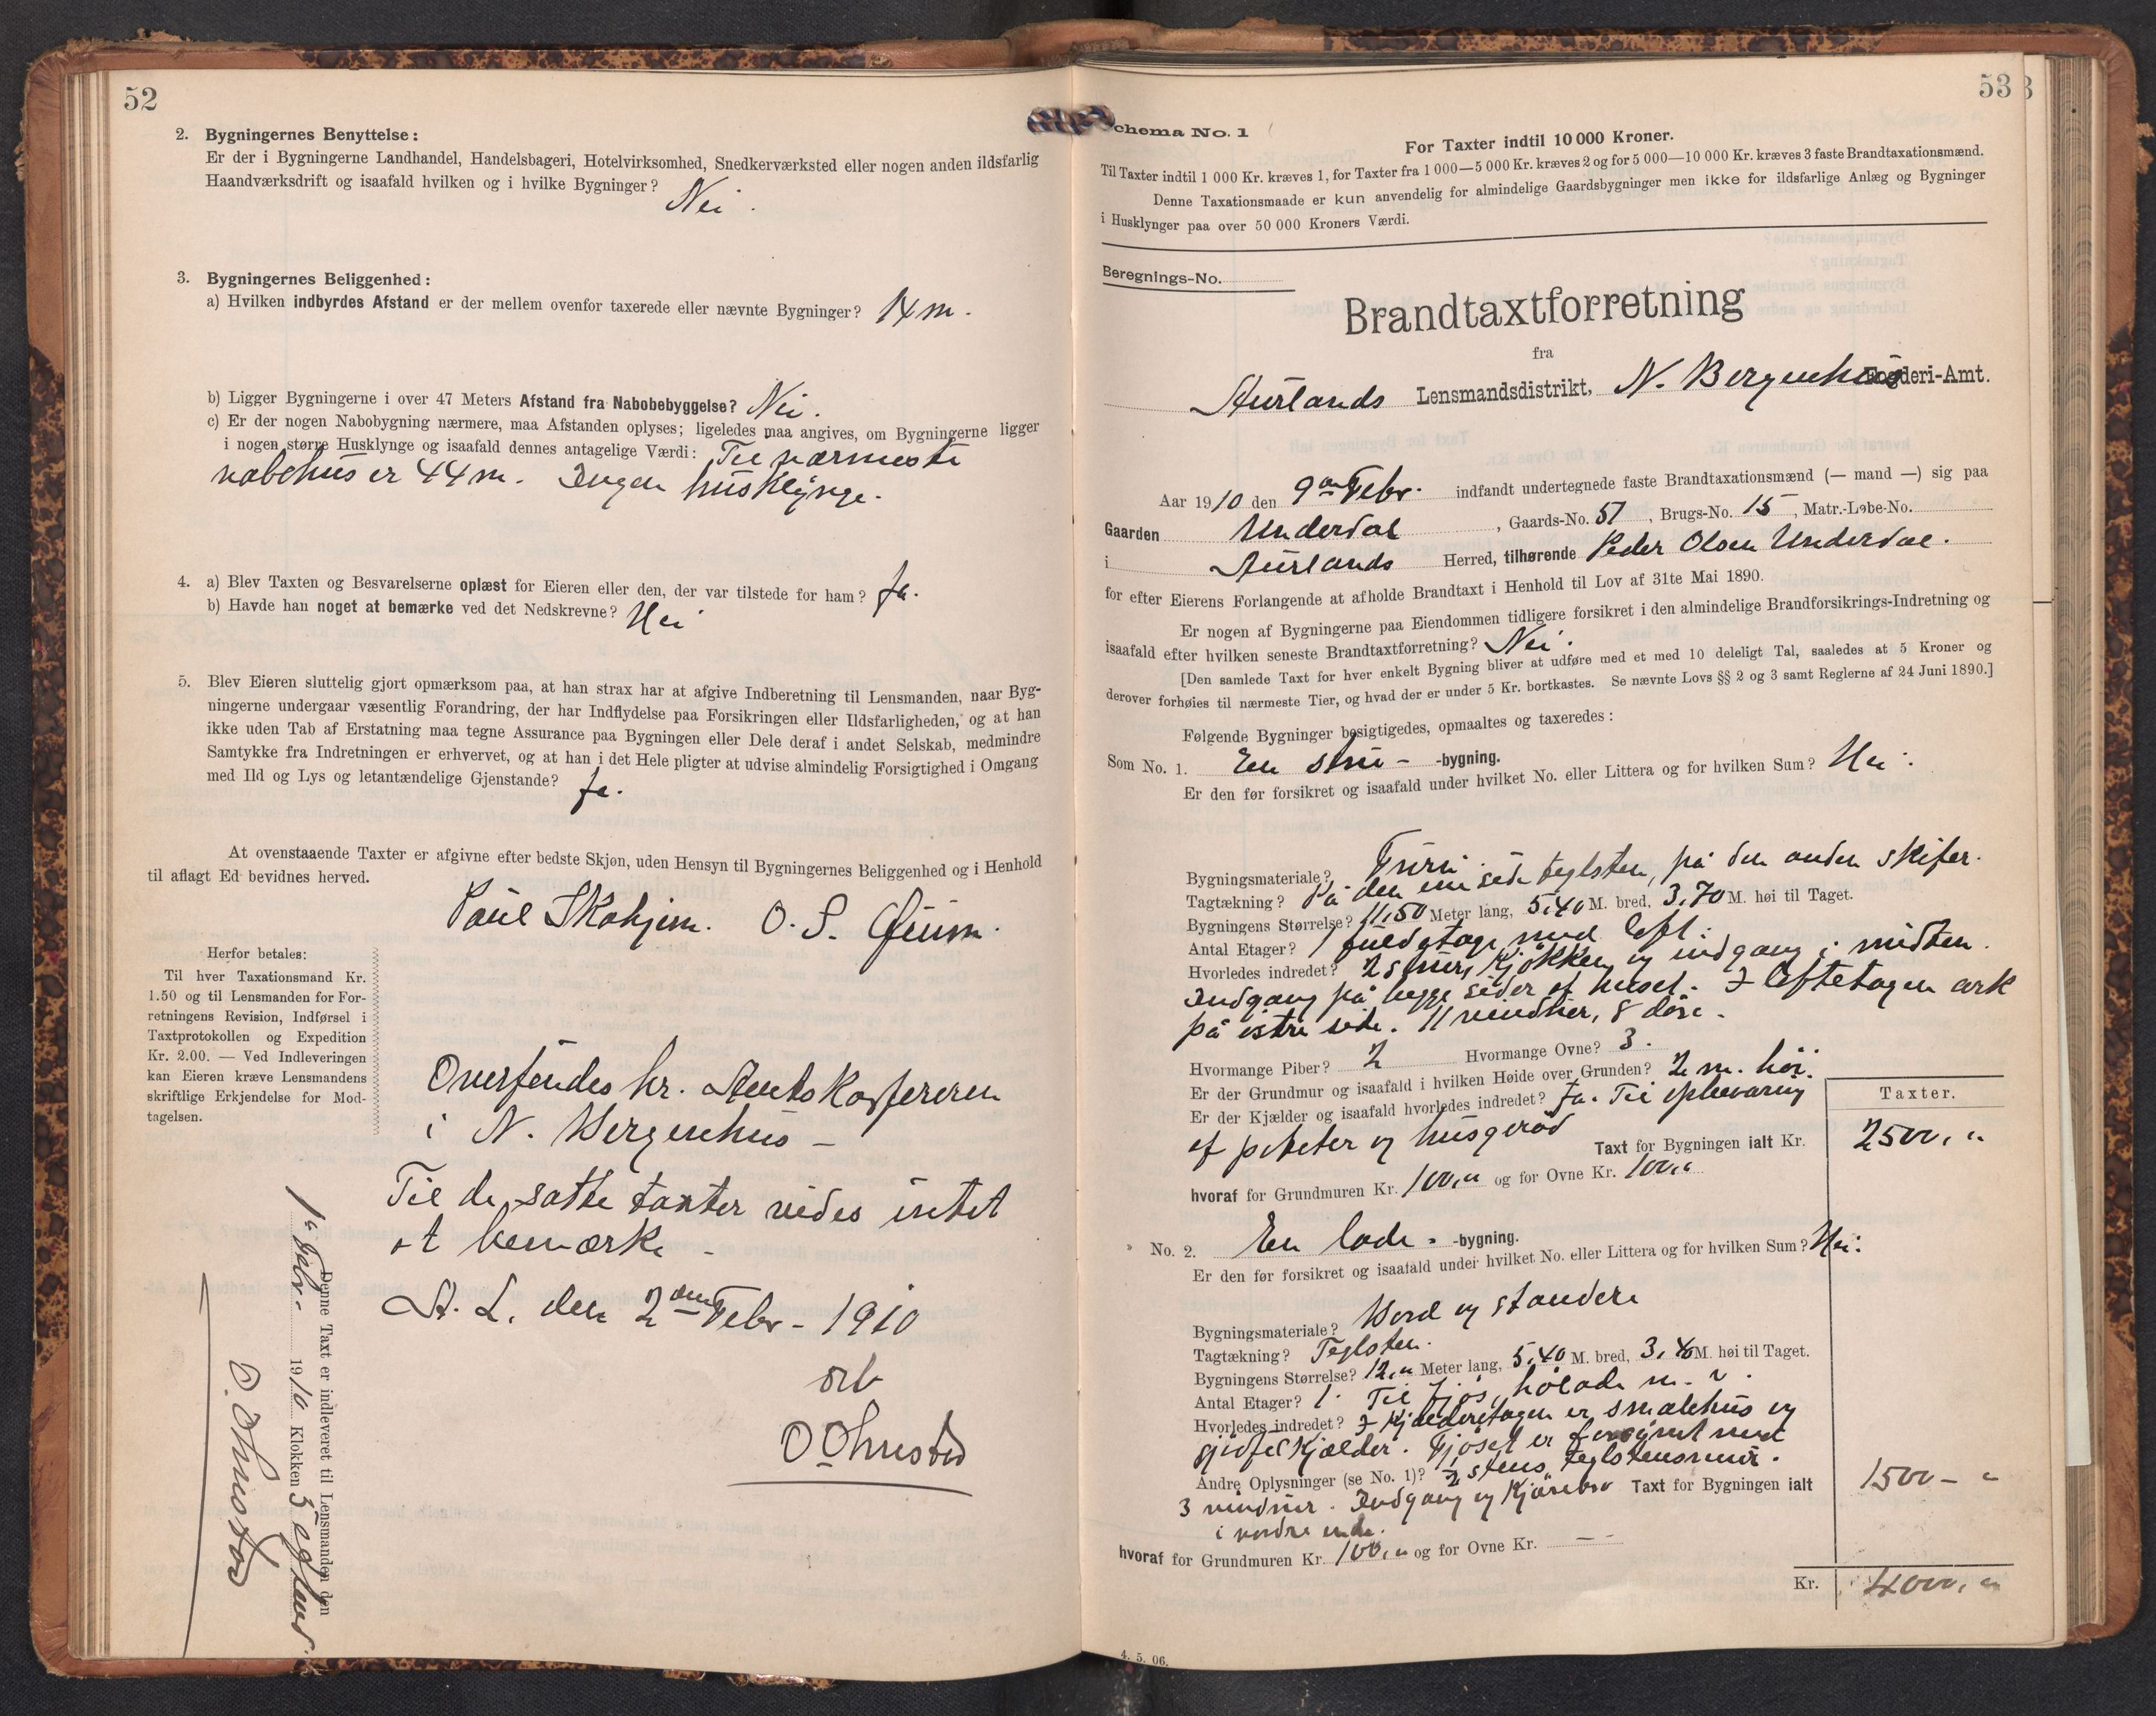 52
2. Bygningernes Benyttelse:
Er der i Bygningerne Landhandel, Handelsbageri, Hotelvirksomhed, Snedkerværksted eller nogen anden ildsfarlig
Haandværksdrift og isaafald hvilken og i hvilke Bygninger? Nei.
3. Bygningernes Beliggenhed:
a) Hvilken indbyrdes Afstand er der mellem ovenfor taxerede eller nævnte Bygninger? 14 m.
b) Ligger Bygningerne i over 47 Meters Afstand fra Nabobebyggelse? Nei.
c) Er der nogen Nabobygning nærmere, maa Afstanden oplyses; ligeledes maa angives, om Bygningerne ligger
i nogen større Husklynge og isaafald dennes antagelige Værdi: Til nærmeste
nabohus er 44 m. Ingen husklynge.
4. a) Blev Taxten og Besvarelserne oplæst for Eieren eller den, der var tilstede for ham? Ja.
b) Havde han noget at bemærke ved det Nedskrevne? Nei
5. Blev Eieren sluttelig gjort opmærksom paa, at han strax har at afgive Indberetning til Lensmanden, naar Byg-
ningerne undergaar væsentlig Forandring, der har Indflydelse paa Forsikringen eller Ildsfarligheden, og at han
ikke uden Tab af Erstatning maa tegne Assurance paa Bygningen eller Dele deraf i andet Selskab, medmindre
Samtykke fra Indretningen er erhvervet, og at han i det Hele pligter at udvise almindelig Forsigtighed i Omgang
med Ild og Lys og letantændelige Gjenstande? Ja.
At ovenstaaende Taxter er afgivne efter bedste Skjøn, uden Hensyn til Bygningernes Beliggenhed og i Henhold
til aflagt Ed bevidnes herved.
Paul Skahjem. O. S.
Herfor betales:
Til hver Taxationsmand Kr.
1.50 og til Lensmanden for For-
retningens Revision, Indførsel i
Taxtprotokollen og Expedition
Kr. 2.00. — Ved Indleveringen
kan Eieren kræve Lensmandens
skriftlige Erkjendelse for Mod-
tagelsen.
Oversendes hr. Amtskasfereren
i N. Bergenhus –
Til de satte taxter vides intet
at bemærke –
A. L. den 2den Febr – 1910
O Ohnstad
Denne Taxt er indleveret til Lensmanden den
1ste Febr. 1910 Klokken 3
O. Ohnstad
53
Schema No. 1
For Taxter indtil 10 000 Kroner.
Til Taxter indtil 1 000 Kr. kræves 1, for Taxter fra 1 000—5 000 Kr. kræves 2 og for 5 000—10 000 Kr. kræves 3 faste Brandtaxationsmænd.
Denne Taxationsmaade er kun anvendelig for almindelige Gaardsbygninger men ikke for ildsfarlige Anlæg og Bygninger
i Husklynger paa over 50 000 Kroners Værdi.
Beregnings-No.
Brandtaxtforretning
fra
Aurlands Lensmandsdistrikt, N. Bergenhus Fogderi-Amt.
Aar 1910 den 9de Febr. indfandt undertegnede faste Brandtaxationsmænd (— mand —) sig paa
Gaarden Underdal, Gaards-No. 51, Brugs-No. 15, Matr.-Løbe-No.
i Aurlands Herred, tilhørende Peder Olsen Underdal.
for efter Eierens Forlangende at afholde Brandtaxt i Henhold til Lov af 31te Mai 1890.
Er nogen af Bygningerne paa Eiendommen tidligere forsikret i den almindelige Brandforsikrings-Indretning og
isaafald efter hvilken seneste Brandtaxtforretning? Nei.
[Den samlede Taxt for hver enkelt Bygning bliver at udføre med et med 10 deleligt Tal, saaledes at 5 Kroner og
derover forhøies til nærmeste Tier, og hvad der er under 5 Kr. bortkastes. Se nævnte Lovs §§ 2 og 3 samt Reglerne af 24 Juni 1890.]
Følgende Bygninger besigtigedes, opmaaltes og taxeredes:
Som No. 1. En stue – -bygning.
Er den før forsikret og isaafald under hvilket No. eller Littera og for hvilken Sum? Nei.
Bygningsmateriale? Furu.
Tagtækning? På den ene side teglsten, på den anden skifer.
Bygningens Størrelse? 11,50 Meter lang, 5,40 M. bred, 3,70 M. høi til Taget.
Antal Etager? 1 fuldetage med loft.
Hvorledes indredet? 2 stuer, kjøkken og indgang i midten.
Indgang på begge sider af huset. I loftetagen ark
på østre side. 11 vinduer, 8 døre.
Hvormange Piber? 2 Hvormange Ovne? 3.
Er der Grundmur og isaafald i hvilken Høide over Grunden? 2 m. høi.
Er der Kjælder og isaafald hvorledes indredet? Ja. Til opbevaring
af poteter og husgeråd
Taxter.
Taxt for Bygningen ialt Kr. 2500, "
hvoraf for Grundmuren Kr. 100, " og for Ovne Kr. 100, "
No. 2. En lade - -bygning.
Er den før forsikret og isaafald under hvilket No. eller Littera og for hvilken Sum? Nei.
Bygningsmateriale? Bord og standere
Tagtækning? Teglsten.
Bygningens Størrelse? 12, " Meter lang, 5,40 M. bred, 3,40 M. høi til Taget.
Antal Etager? 1. Til fjøs, hølade m. v.
Hvorledes indredet? I kjælderetagen er smalehus og
gjødselkjælder. Fjøset er forsynet med
Andre Oplysninger (se No. 1)? ½ stens teglstensmur.
3 vinduer. Indgang og kjørebro Taxt for Bygningen ialt 1500 – "
i nordre ende.
hvoraf for Grundmuren Kr. 100, " og for Ovne Kr. — -
Kr. 4000, "
4. 5. 06.